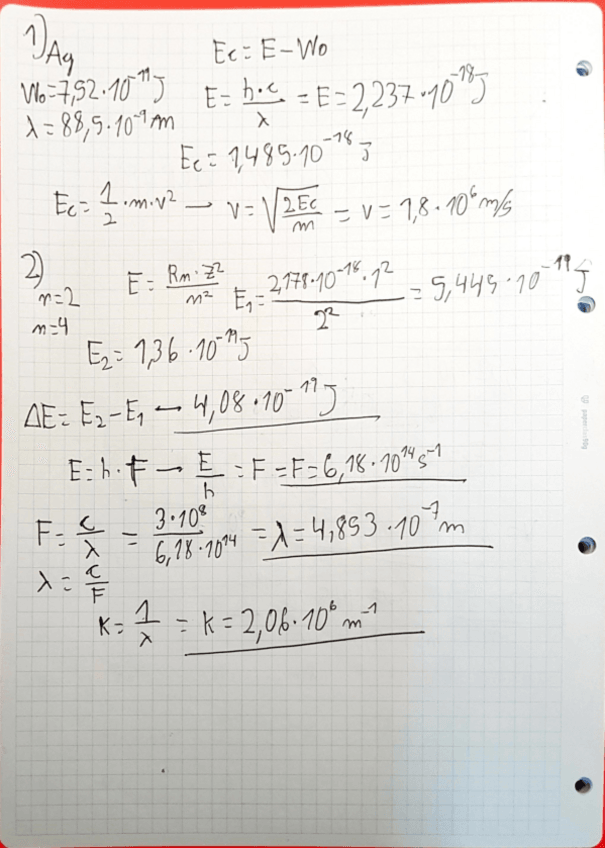 1) Ag
Ec = E - Wo
Wo = 7,52·10⁻¹⁹ J
E = h·c/λ = E = 2,237·10⁻¹⁸ J
λ = 88,5·10⁻⁹ m
Ec = 1,485·10⁻¹⁸ J
Ec = 1/2·m·v² → v = √(2Ec/m) = v = 1,8·10⁶ m/s
2)
n=2
n=4
E = Rn·Z²/n²
E₁ = 2,178·10⁻¹⁸·1²/2² = 5,445·10⁻¹⁹ J
E₂ = 1,36·10⁻¹⁹ J
ΔE = E₂ - E₁ → 4,08·10⁻¹⁹ J
E = h·F → E/h = F = F = 6,18·10¹⁴ s⁻¹
F = c/λ = 3·10⁸/6,18·10¹⁴ = λ = 4,853·10⁻⁷ m
λ = c/F
K = 1/λ = K = 2,06·10⁶ m⁻¹